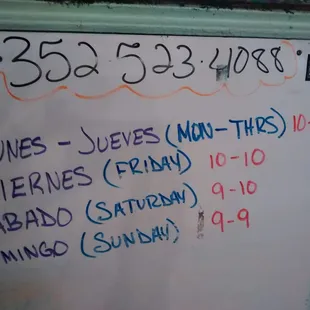 352 523 4088
UNES - JUEVES (MON-THRS) 10-
IERNES (FRIDAY) 10-10
ABADO (SATURDAY) 9-10
MINGO (SUNDAY) 9-9